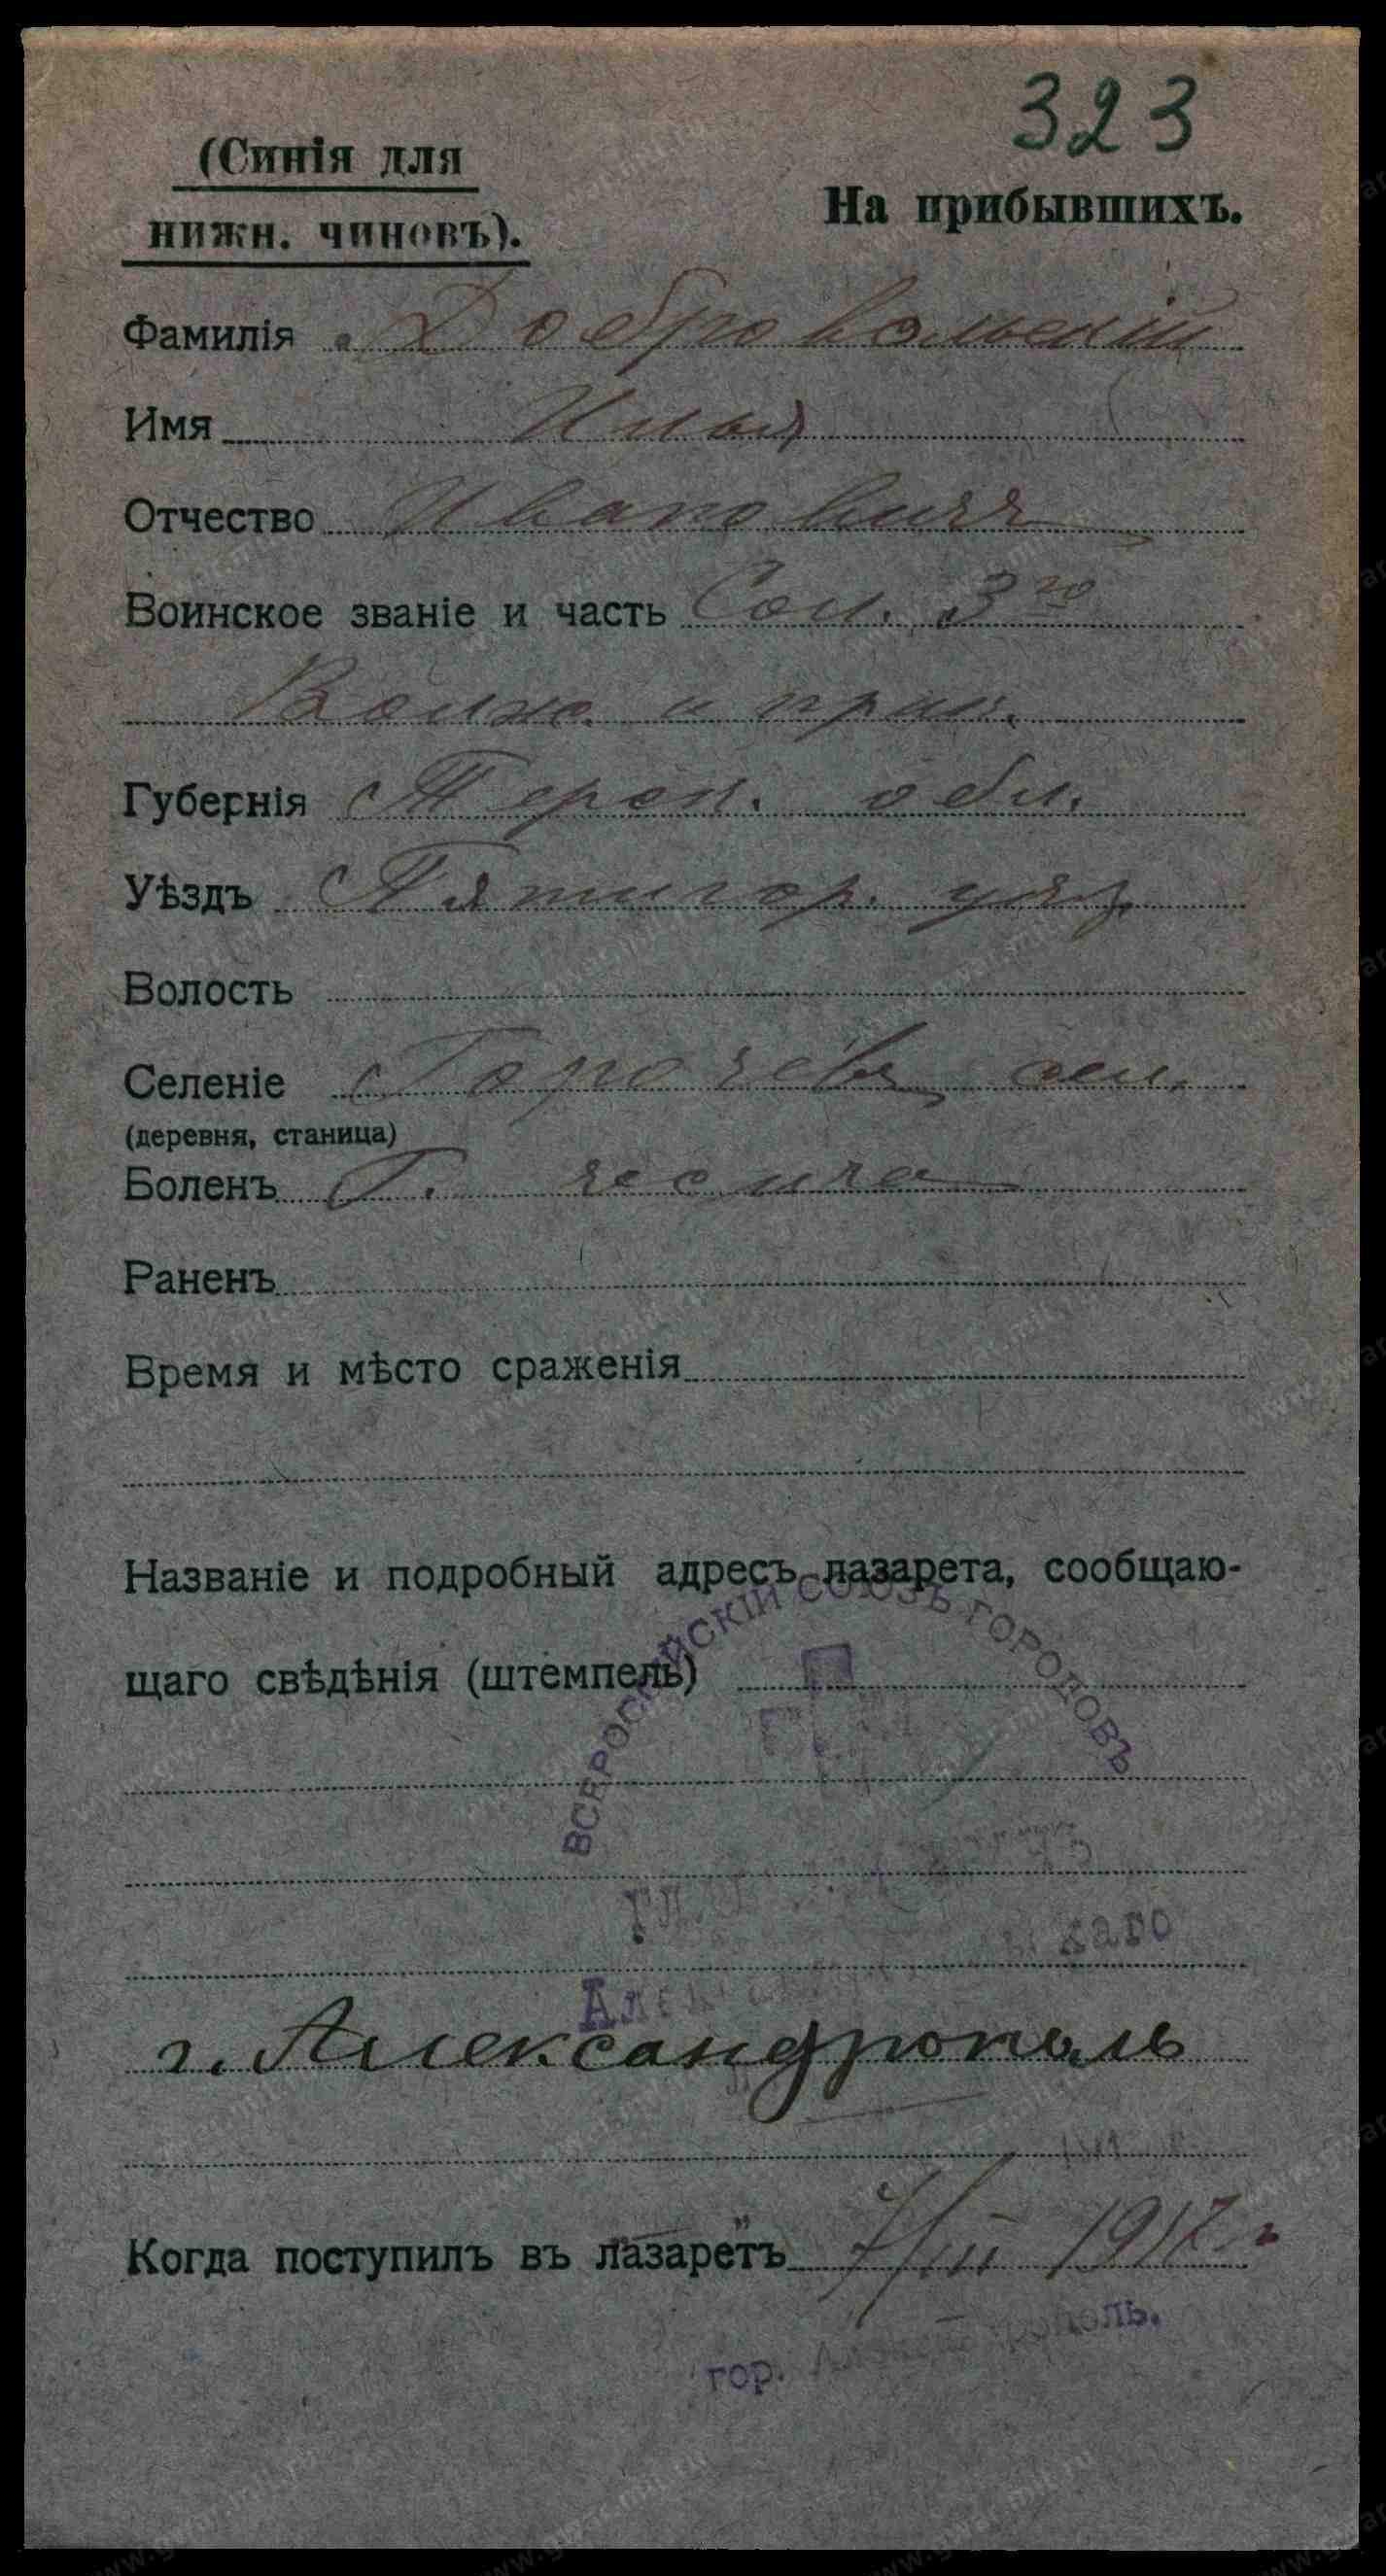 323
(Синія для
нижн. чиновъ).
На прибывшихъ.
Фамилія Добровольскій
Имя Илья
Отчество Ивановичъ
Воинское званіе и часть Сол. 3го
Губернія Терск. обл.
Уѣздъ Пятигор. уѣз.
Волость
Селеніе сел.
(деревня, станица)
Боленъ
Раненъ
Время и мѣсто сраженія
Названіе и подробный адресъ лазарета, сообщаю-
щаго свѣдѣнія (штемпель)
ВСЕРОССІЙСКІЙ СОЮЗЪ ГОРОДОВЪ
г. Александрополь
Когда поступилъ въ лазаретъ 7/III 1917 г
гор. Александрополь.